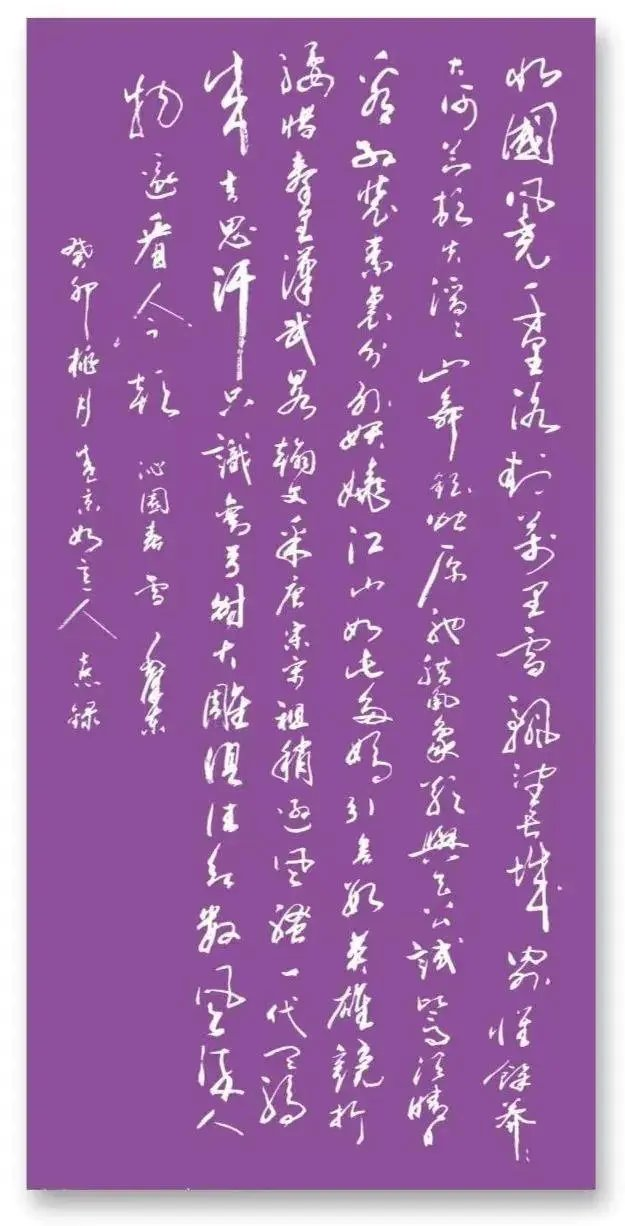 北國風光千里冰封萬里雪飄望長城內外惟餘莽莽
大河上下頓失滔滔山舞銀蛇原馳蠟象欲與天公試比高須晴日
看紅裝素裹分外妖嬈江山如此多嬌引無數英雄競折
腰惜秦皇漢武略輸文采唐宗宋祖稍遜風騷一代天驕
成吉思汗只識彎弓射大雕俱往矣數風流人
物還看今朝 沁園春雪
癸卯桃月 京如意人 錄